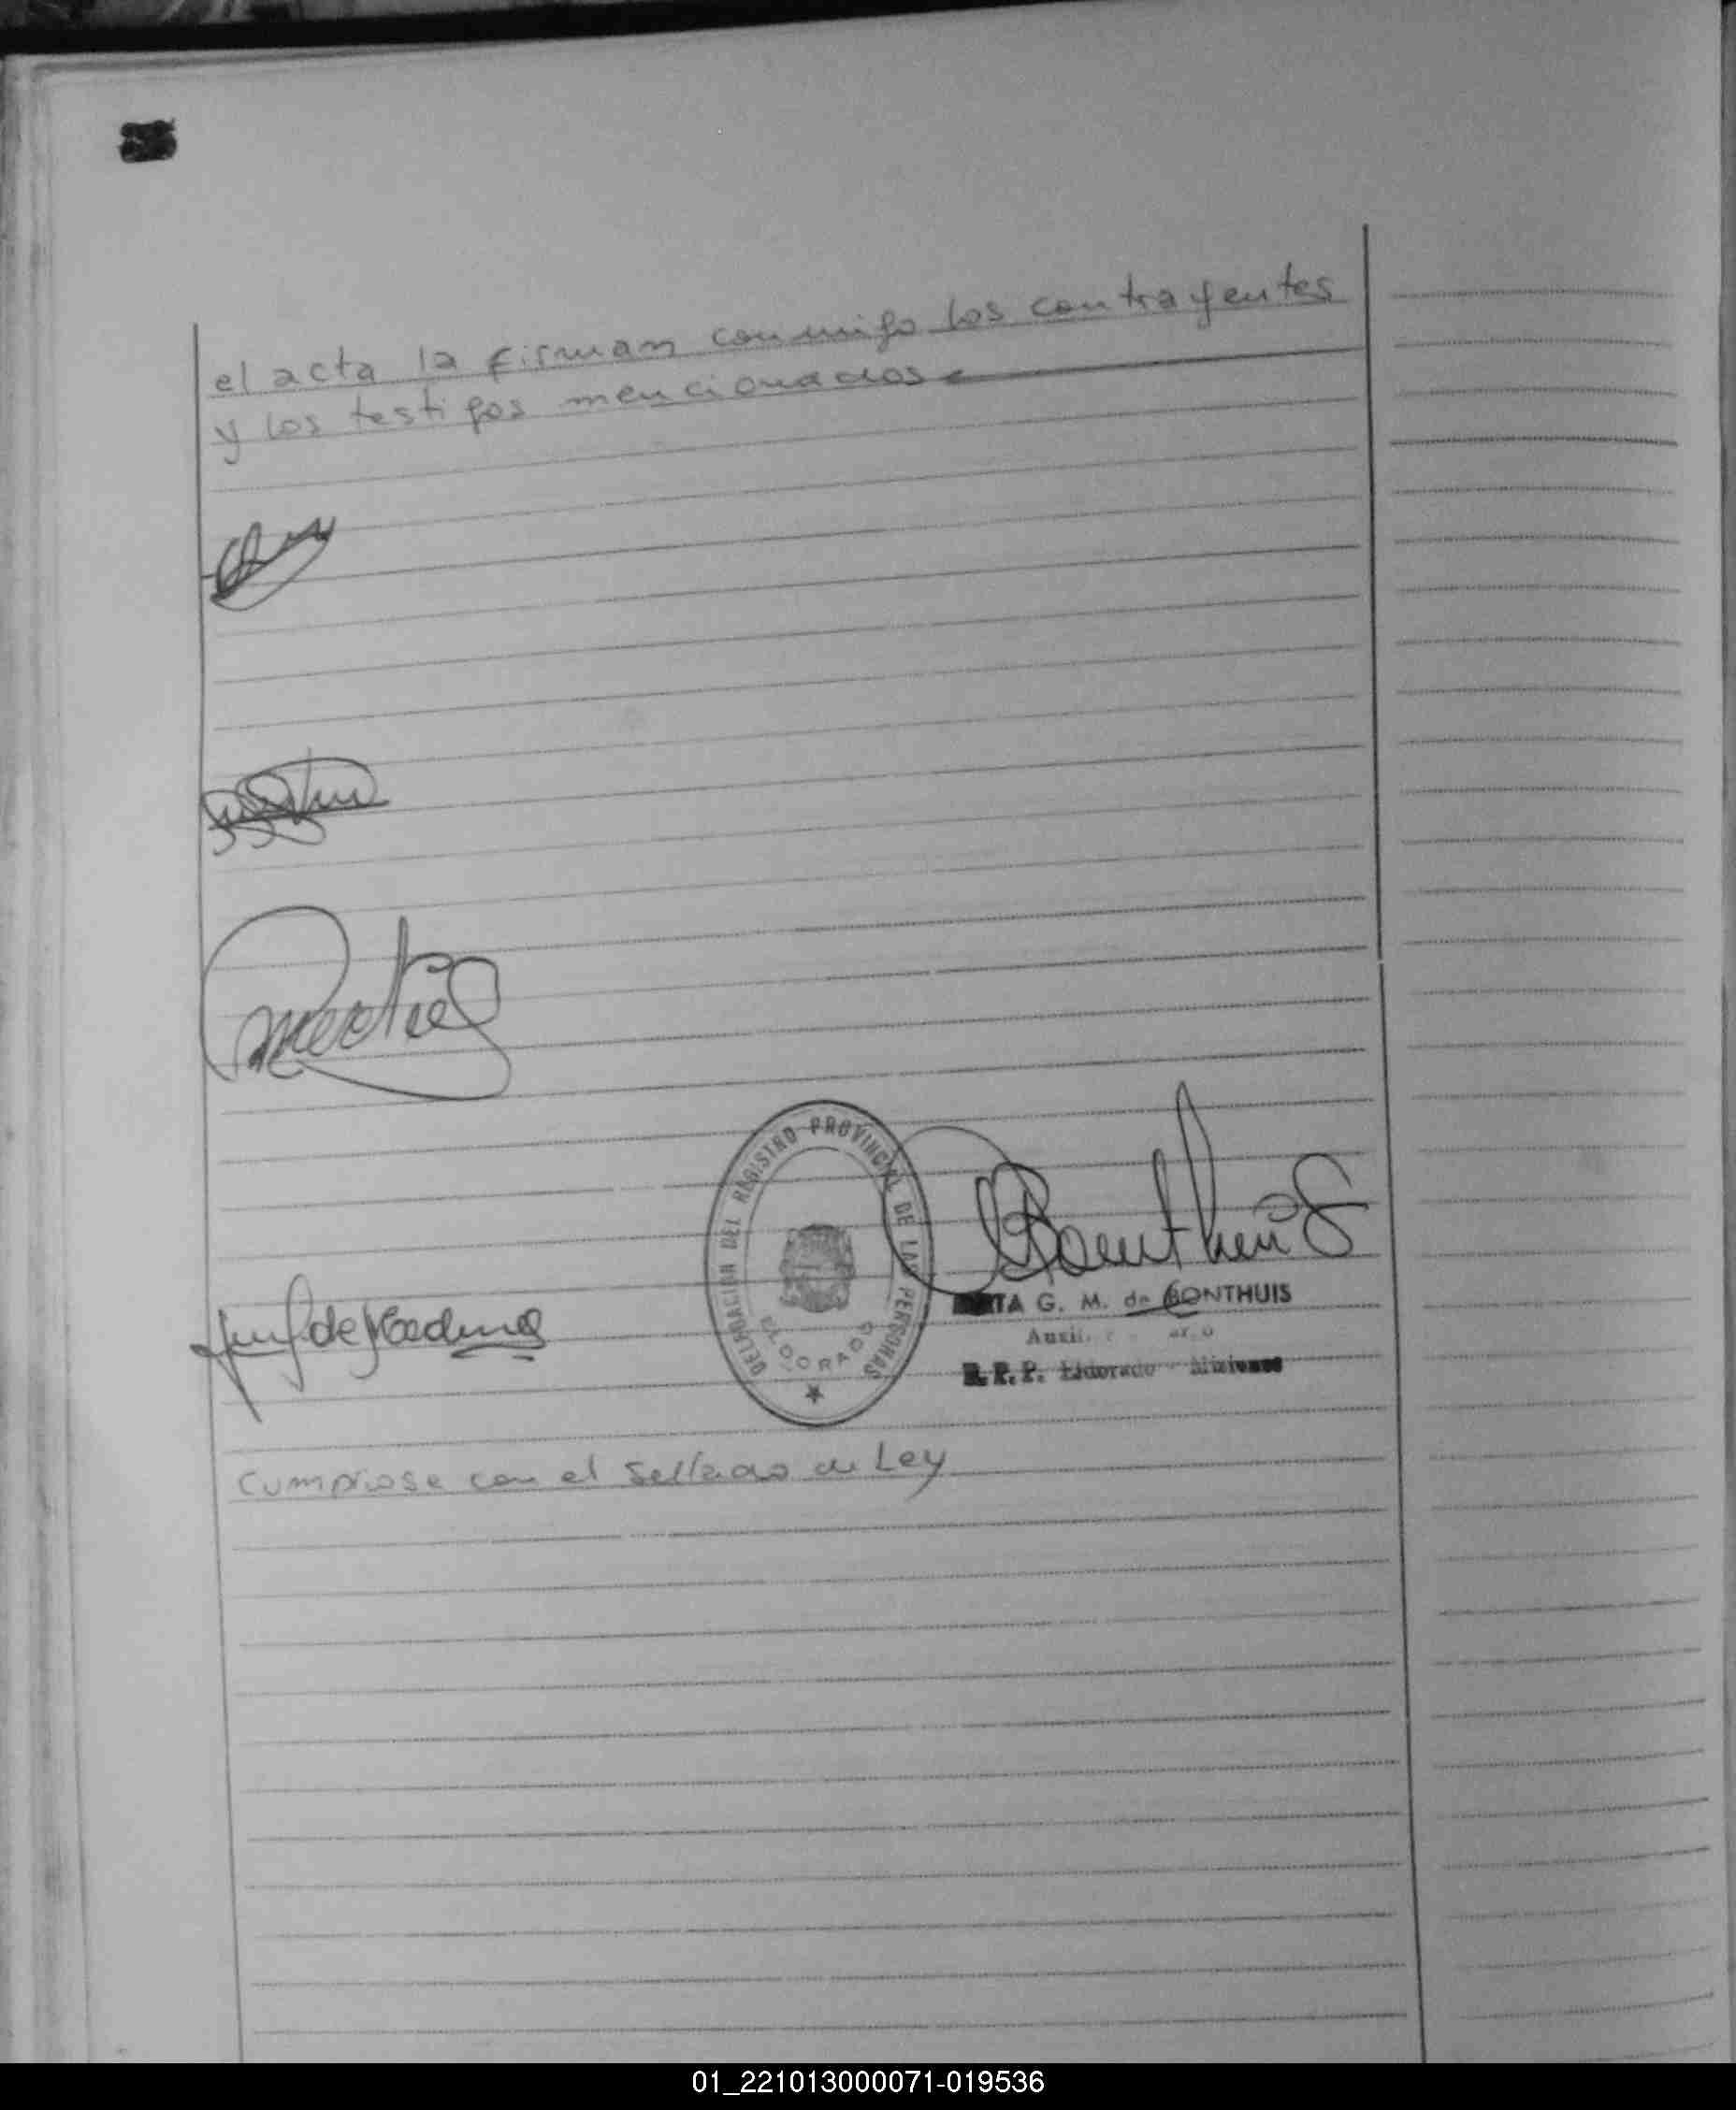 el acta la firman conmigo los contrayentes
y los testigos mencionados
DELEGACION DEL REGISTRO PROVINCIAL DE LAS PERSONAS
ELDORADO
Bonthuis
TA G. M. de BONTHUIS
de Medina
R. P. P. Eldorado - Misiones
Cumpliose con el Sellado de Ley
01_221013000071-019536